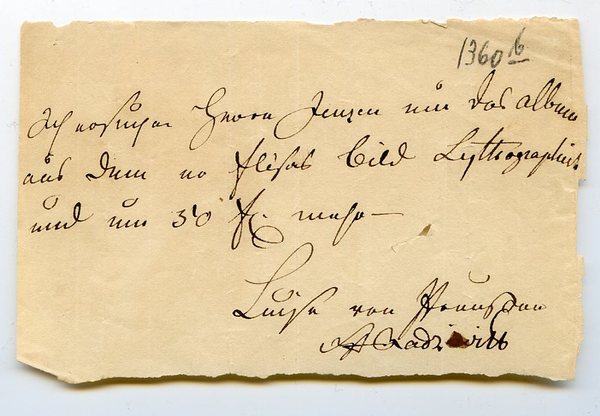 1360 b
Ich ersuche Herrn Jenzen um das album
aus dem Elisas bild Lythographirt
und um 50 mehr —
Luise von Preussen
Radziwill